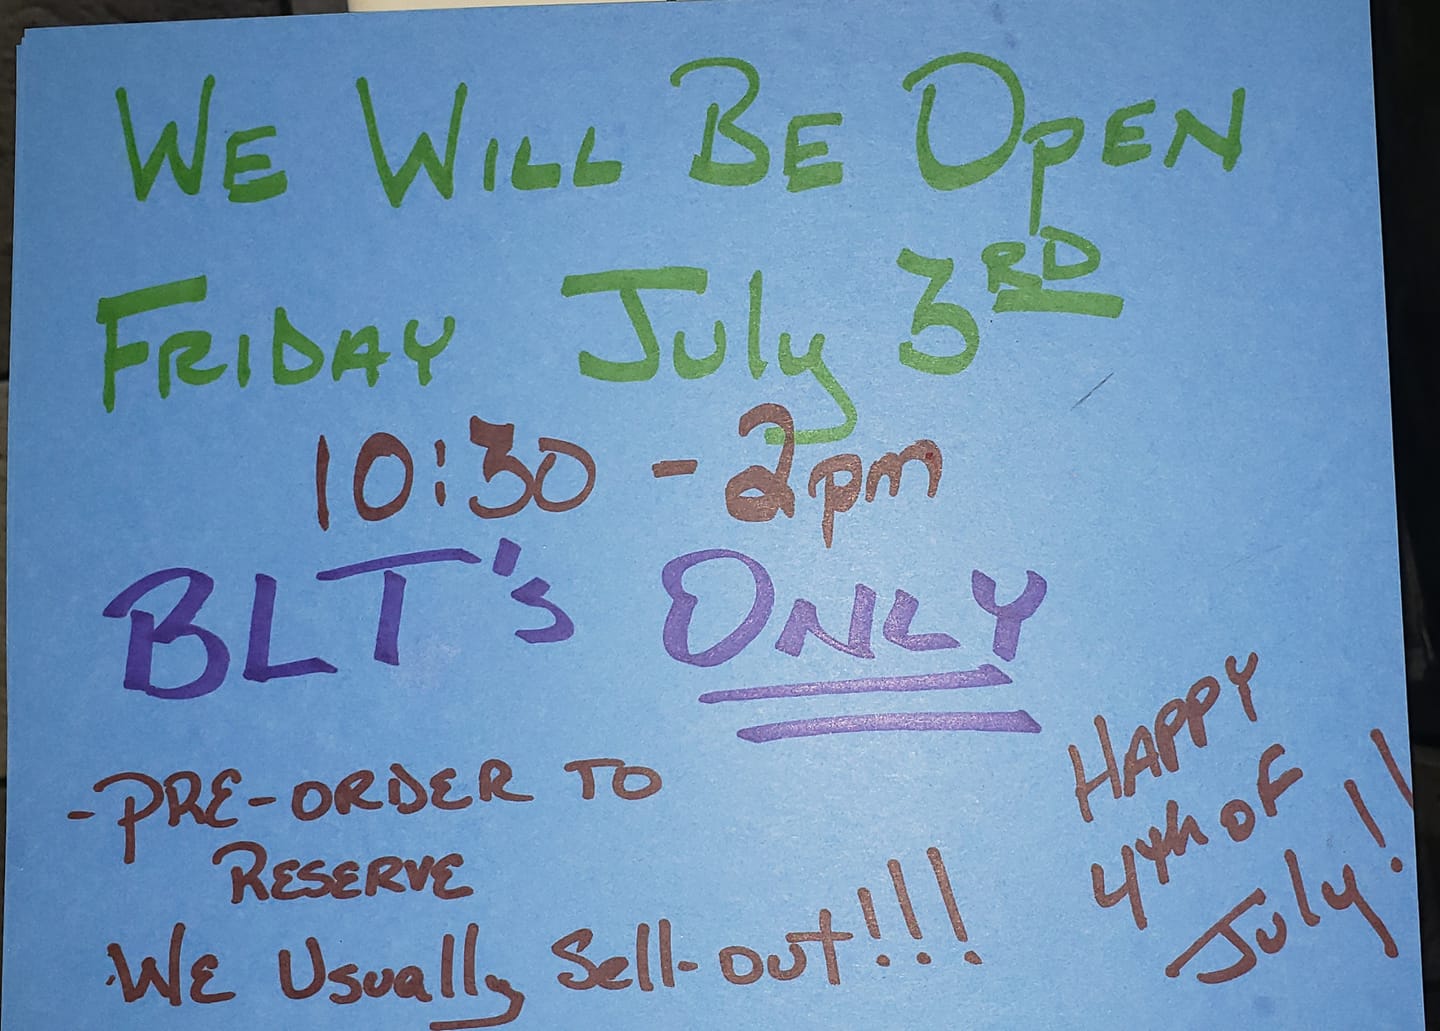 WE WILL BE OPEN
FRIDAY July 3RD
10:30 - 2pm
BLT's ONLY
- PRE-ORDER TO
RESERVE
WE Usually Sell-out!!!
HAPPY
4th OF
July!!